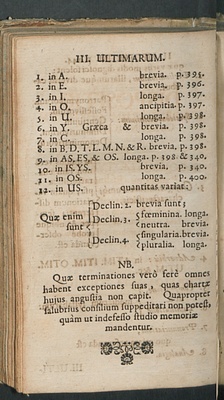 III. ULTIMARUM.
1. in A. brevia. p. 395.
2. in E. brevia. p. 396.
3. in I. longa. p. 397.
4. in O. ancipitia. p. 397.
5. in U. longa. p. 398.
6. in Y. Græca & brevia. p. 398.
7. in C. longa. p. 398.
8. in B, D, T. L. M. N. & R. brevia. p. 398.
9. in AS, ES, & OS. longa. p. 398 & 340.
10. in IS, YS. brevia. p. 340.
11. in OS. longa. p. 400.
12. in US. quantitas variat:
Quæ enim sunt
Declin. 2. brevia sunt;
Declin. 3. fœminina. longa.
neutra. brevia.
Declin. 4 singularia. brevia
pluralia. longa.
NB.
Quæ terminationes verò ferè omnes
habent exceptiones suas, quas chartæ
hujus angustia non capit. Quapropter
salubrius consilium suppeditari non potest,
quàm ut indefesso studio memoriæ
mandentur.